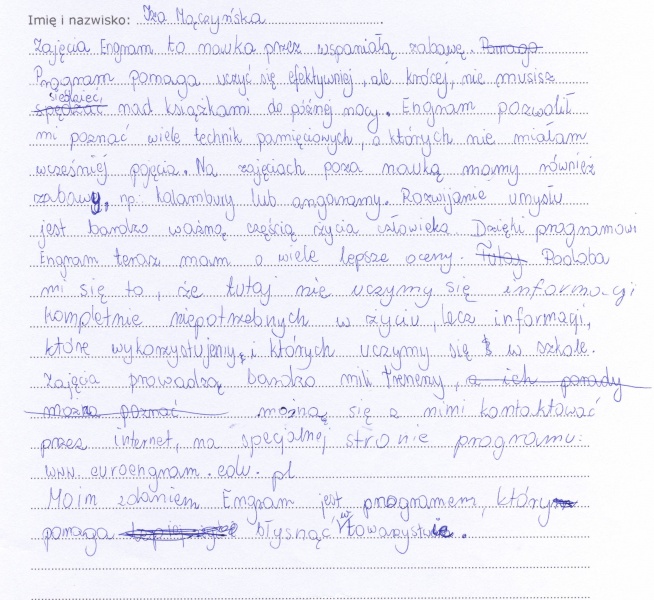 Imię i nazwisko: Iza Mączyńska
Zajęcia Engram to nauka przez wspaniałą zabawę. Pomaga
Program pomaga uczyć się efektywniej, ale krócej, nie musisz
siedzieć
spędzać nad książkami do późnej nocy. Engram pozwolił
mi poznać wiele technik pamięciowych, o których nie miałam
wcześniej pojęcia. Na zajęciach poza nauką mamy również
zabawy, np: kalambury lub anganamy. Rozwijanie umysłu
jest bardzo ważną częścią życia człowieka Dzięki programowi
Engram teraz mam o wiele lepsze oceny. Tutaj Podoba
mi się to, że tutaj nie uczymy się informacji
kompletnie niepotrzebnych w życiu, lecz informacji,
które wykorzystujemy, i których uczymy się w szkole.
Zajęcia prowadzą bardzo mili trenerzy, a ich porady
można poznać można się z nimi kontaktować
przez internet, na specjalnej stronie programu:
www.euroengram.edu.pl
Moim zdaniem Engram jest programem, który
pomaga błysnąć w towarzystwie.